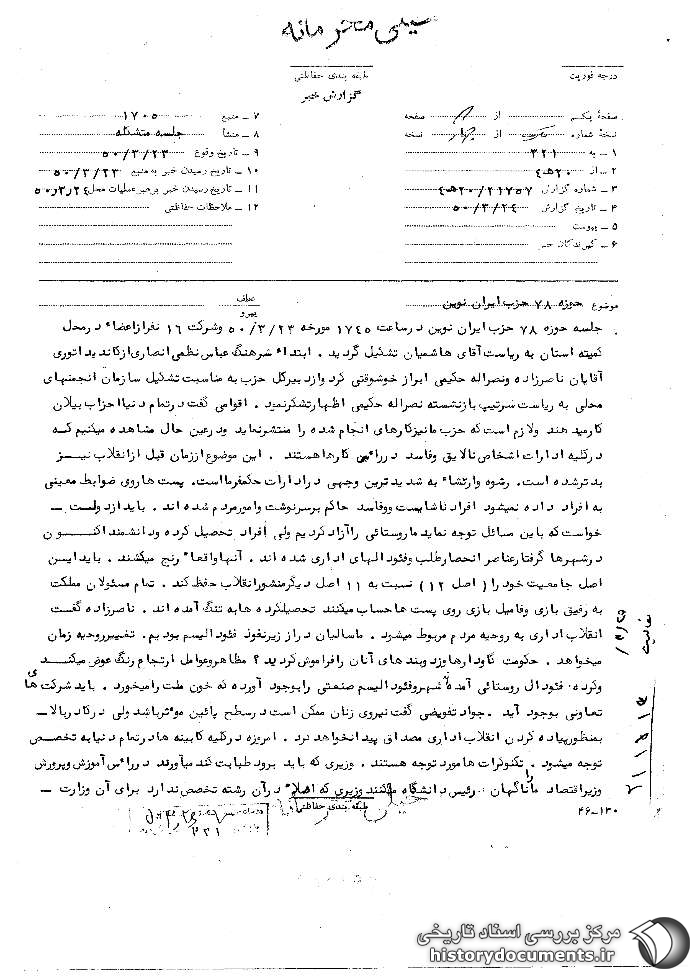 خیلی محرمانه
درجه فوریت
طبقه بندی حفاظتی
گزارش خبر
صفحهٔ یکم از ۲ صفحه
نسخهٔ شماره یک از چهار نسخه
۱ ـ به ۳۲۱
۲ ـ از ۲۰ ه‍ ٤
۳ ـ شماره گزارش ۲۱۷۵۷/ ۲۰ ه‍ ٤
۴ ـ تاریخ گزارش ۵۰/۳/۲۴
۵ ـ پیوست
۶ ـ گیرندگان خبر
۷ ـ منبع ۱۷۰۵
۸ ـ منشأ جلسه متشکله
۹ ـ تاریخ وقوع ۵۰/۳/۲۳
۱۰ ـ تاریخ رسیدن خبر به منبع ۵۰/۳/۲۳
۱۱ ـ تاریخ رسیدن خبر برهبر عملیات محل ۵۰٫۳٫۲۴
۱۲ ـ ملاحظات حفاظتی
موضوع حوزه ۷۸ حزب ایران نوین
عطف
پیرو
جلسه حوزه ۷۸ حزب ایران نوین در ساعت ۱۷۴۵ مورخه ۵۰/۳/۲۳ و شرکت ۱۶ نفر از اعضاء در محل
کمیته استان به ریاست آقای هاشمیان تشکیل گردید . ابتداء سرهنگ عباس نظمی انصاری از کاندیداتوری
آقایان ناصرزاده و نصراله حکیمی ابراز خوشوقتی کرد و از دبیرکل حزب به مناسبت تشکیل سازمان انجمنهای
محلی به ریاست سرتیپ بازنشسته نصراله حکیمی اظهار تشکر نمود . اقوامی گفت در تمام دنیا احزاب بیلان
کار میدهند و لازم است که حزب ما نیز کارهای انجام شده را منتشر نماید و در عین حال مشاهده میکنیم که
در کلیه ادارات اشخاص نالایق و فاسد در رأس کارها هستند . این موضوع از زمان قبل از انقلاب نیز
بدتر شده است . رشوه و ارتشاء به شدیدترین وجهی در ادارات حکمفرما است . پست ها روی ضوابط معینی
به افراد داده نمیشود افراد ناشایست و فاسد حاکم بر سرنوشت و امور مردم شده اند . باید از دولت ـ
خواست که باین مسائل توجه نماید ما روستائی را آزاد کردیم ولی افراد تحصیل کرده و دانشمند اکنون
در شهرها گرفتار عناصر انحصار طلب و فئودالهای اداری شده اند . آنها واقعا" رنج میکشند . باید این
اصل جامعیت خود را ( اصل ۱۲ ) نسبت به ۱۱ اصل دیگر منشور انقلاب حفظ کند . تمام مسئولان مملکت
به رفیق بازی و فامیل بازی روی پست ها حساب میکنند تحصیلکرده ها به تنگ آمده اند . ناصرزاده گفت
انقلاب اداری به روحیه مردم مربوط میشود . ما سالیان دراز زیر نفوذ فئودالیسم بودیم . تغییر روحیه زمان
میخواهد . حکومت گاودارها و زد و بندهای آنان را فراموش کردید ؟ مظاهر و عوامل ارتجاع رنگ عوض میکنند
و کرده . فئودال روستائی آمده شهر و فئودالیسم صنعتی را بوجود آورده که خون ملت را میخورد . باید شرکت های
تعاونی بوجود آید . جواد تفویضی گفت نیروی زنان ممکن است در سطح پائین موثر باشد ولی در کادر بالا ـ
بمنظور پیاده کردن انقلاب اداری مصداق پیدا نخواهد کرد . امروزه در کلیه کابینه ها در تمام دنیا به تخصص
توجه میشود . تکنوکرات ها مورد توجه هستند . وزیری که باید برود طبابت کند میآورند در رأس آموزش و پرورش
وزیر اقتصاد ما را ناگهان رئیس دانشگاه میکنند وزیری که اصلا" در آن رشته تخصص ندارد برای آن وزارت ـ
طبقه بندی حفاظتی
خیلی محرمانه
۴۶-۱۳۰
۳۲۱
مرکز بررسی اسناد تاریخی
historydocuments.ir